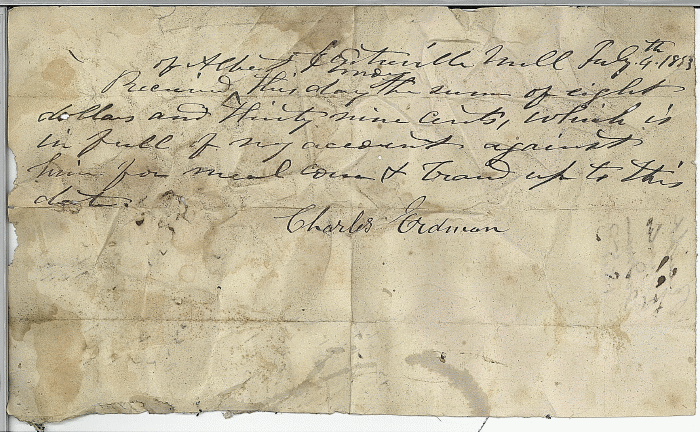 of Albert J Estnville Mill July 4th 1853
Received this day the sum of eight
dollars and thirty nine cents, which is
in full of my account against
him for meal corn & bran up to this
date.
Charles Erdman